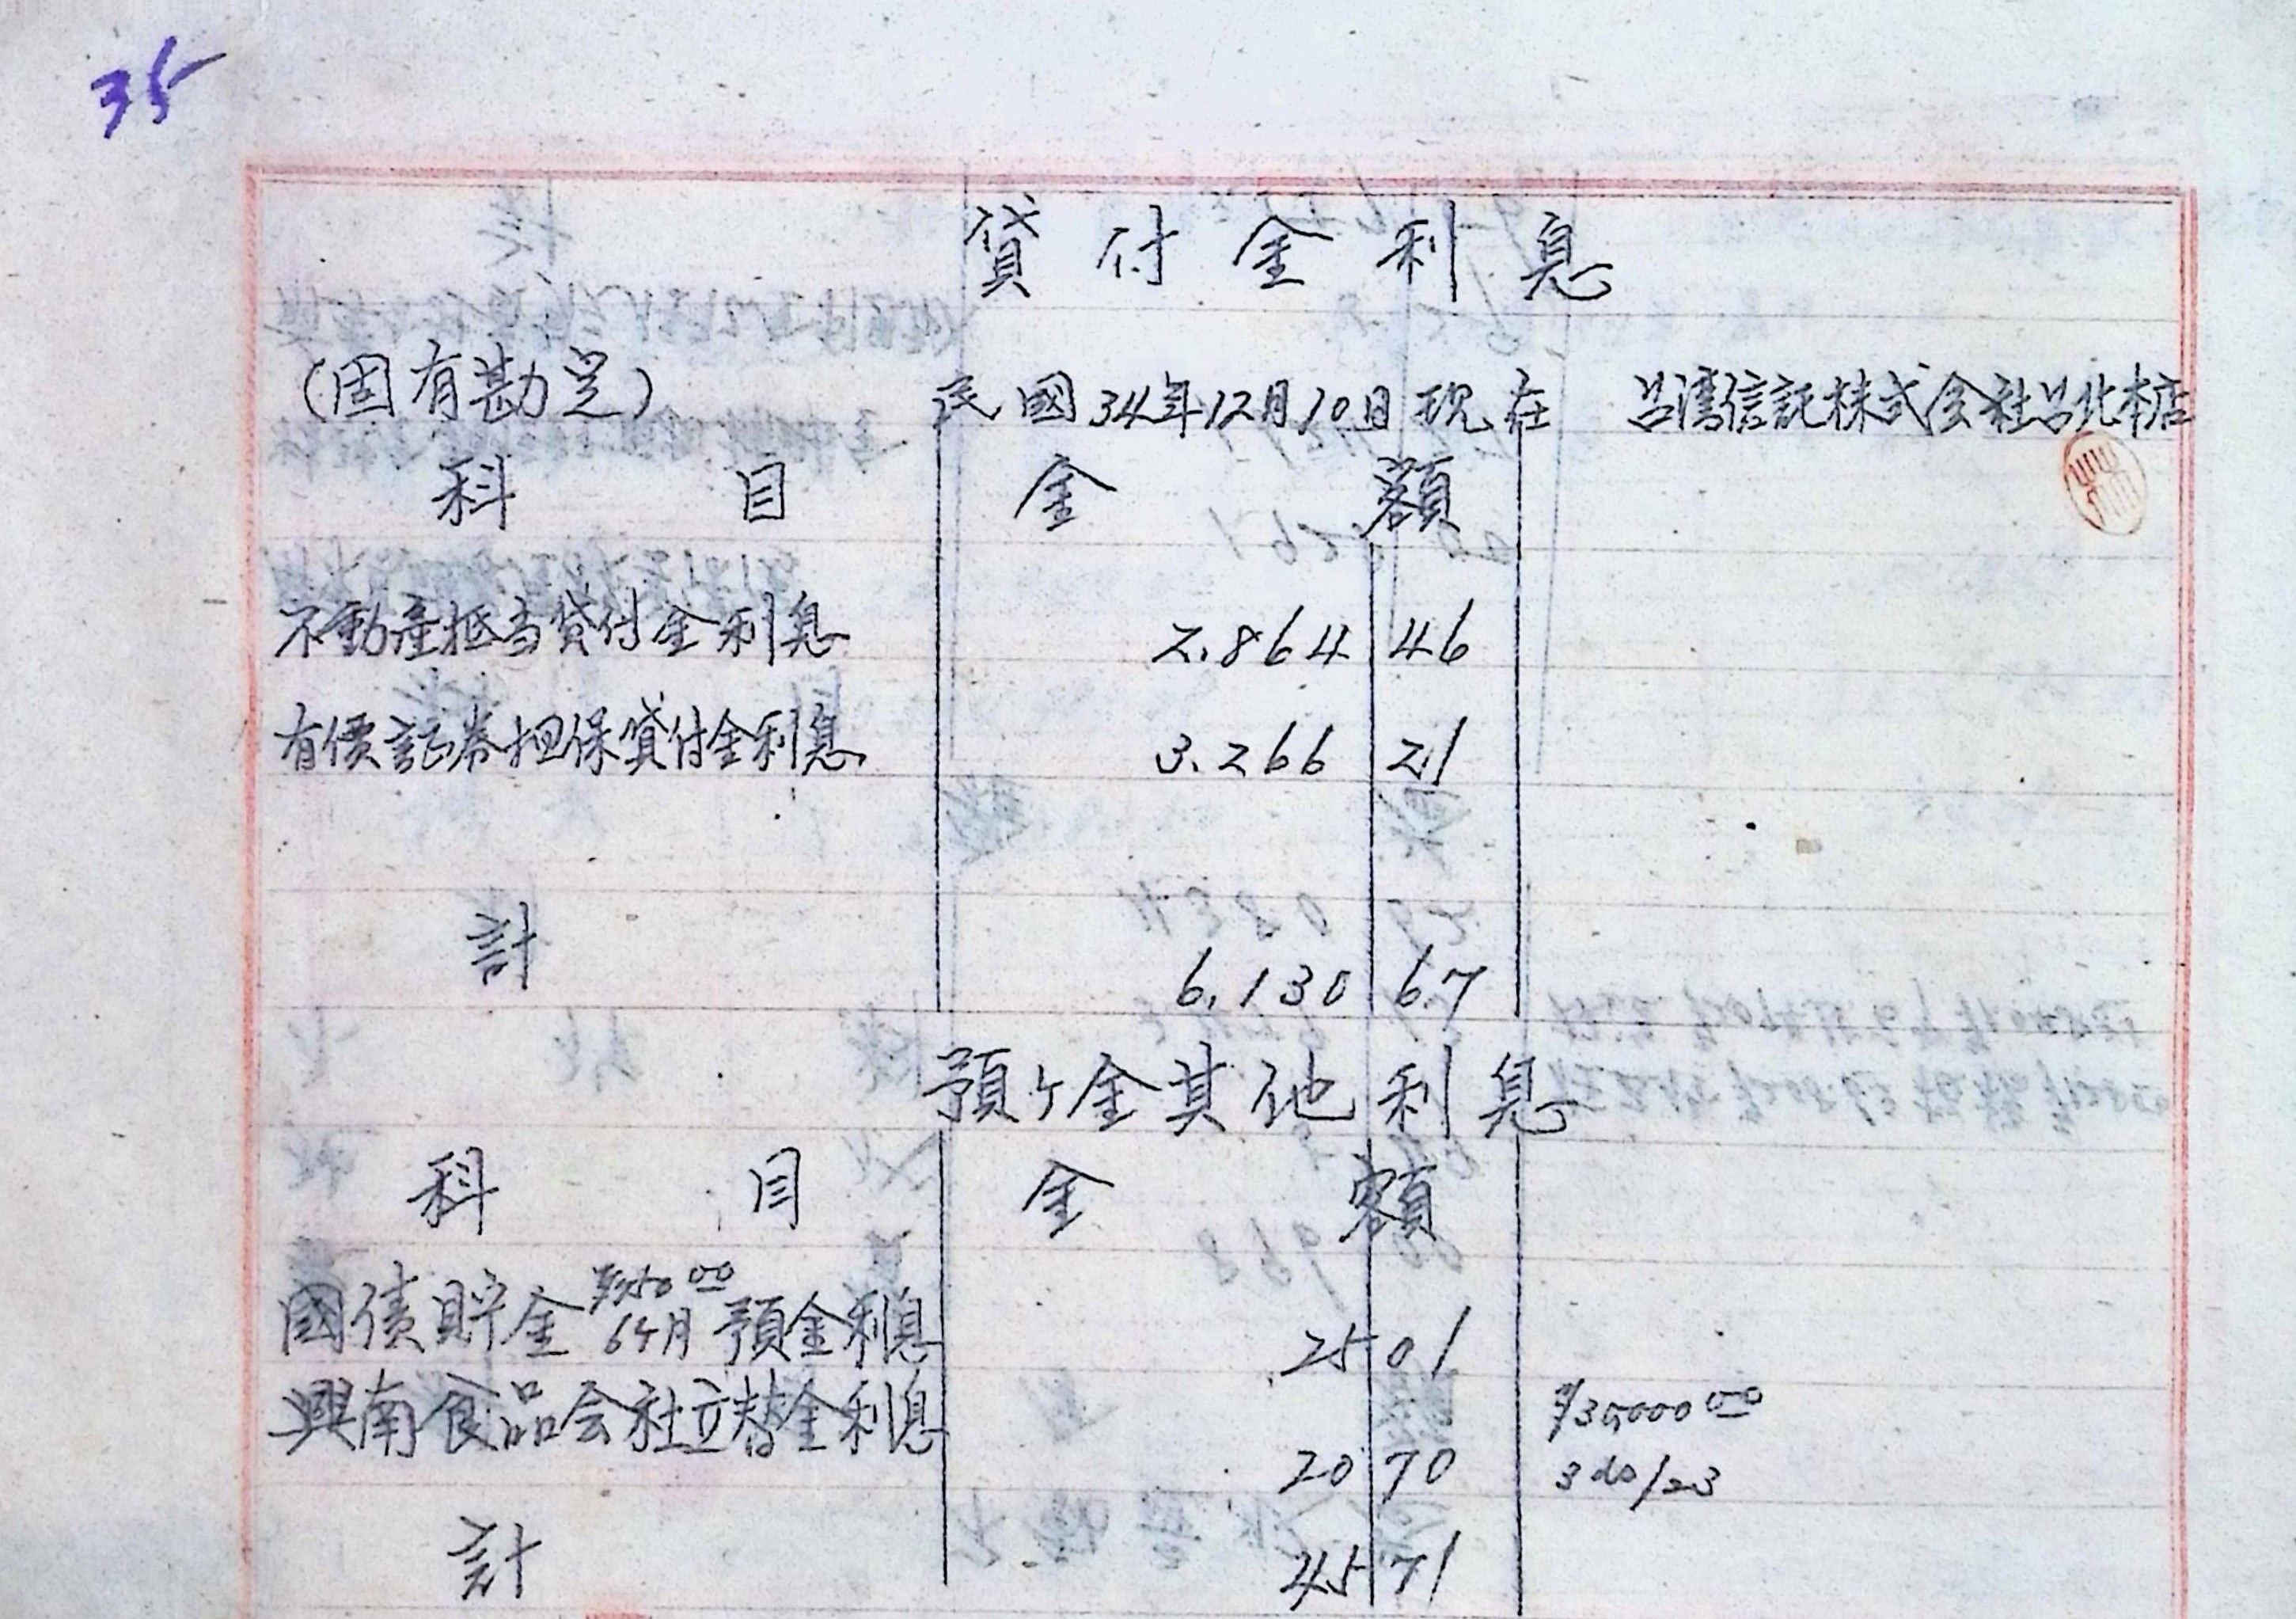 35
貸付金利息
(固有勘定) 民國34年12月10日現在 台湾信託株式会社台北本店
科目 金額
不動産抵当貸付金利息 2.864 46
有價証券担保貸付金利息 3.266 21
計 6.130 67
預ケ金其他利息
科目 金額
國債貯金 6ケ月 預金利息 25 01
興南食品会社立替金利息 20 70
計 45 71